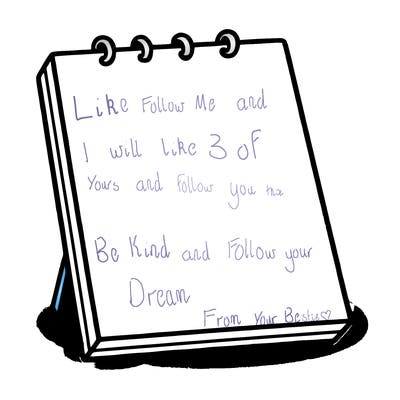 Like Follow Me and
I will like 3 of
Yours and Follow you
Be Kind and Follow your
Dream
From Your Bestie♡